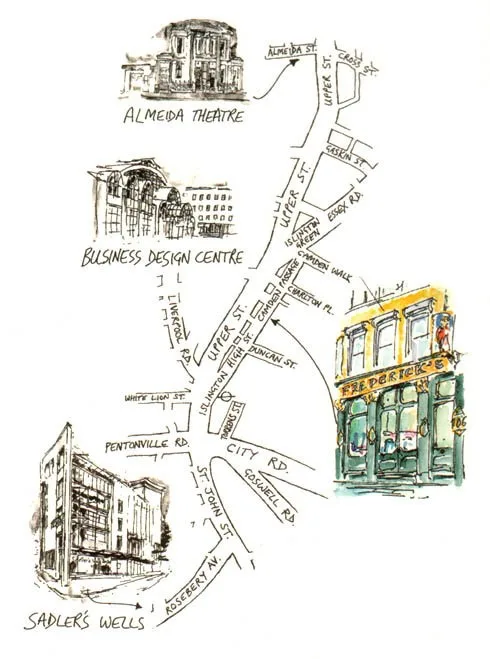 ALMEIDA ST.
CROSS ST.
UPPER ST.
ALMEIDA THEATRE
GASKIN ST
UPPER ST.
ESSEX RD.
ISLINGTON
GREEN
BUSINESS DESIGN CENTRE
CAMDEN WALK
CAMDEN PASSAGE
CHARLTON PL.
LIVERPOOL RD.
UPPER ST.
ISLINGTON HIGH ST.
DUNCAN ST.
FREDERICK'S
106
WHITE LION ST.
TORRENS ST.
PENTONVILLE RD.
CITY RD.
GOSWELL RD.
ST. JOHN ST.
ROSEBERY AV.
SADLER'S WELLS